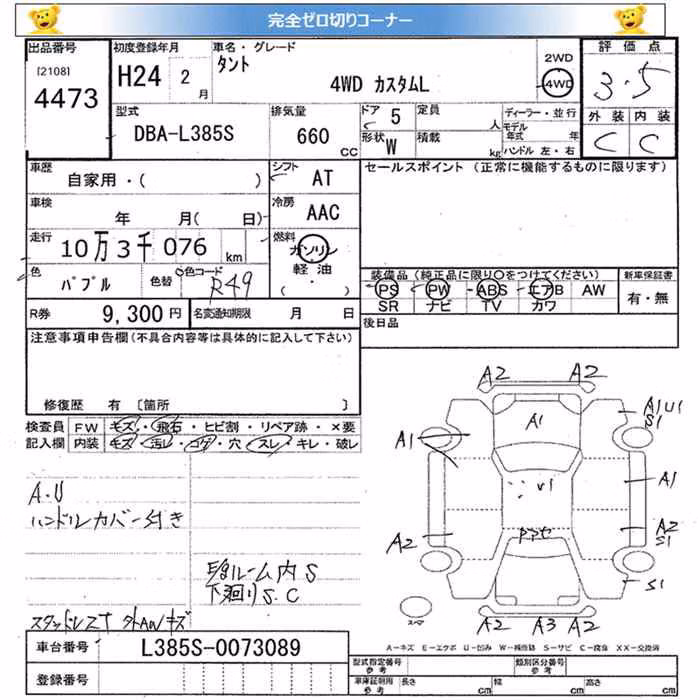 完全ゼロ切りコーナー
出品番号
[2108]
4473
初度登録年月
H24 2月
車名・グレード
タント
4WD カスタムL
2WD
4WD
評価点
3.5
外装 内装
C C
型式
DBA-L385S
排気量
660 CC
ドア 5
形状 W
定員 人
積載 kg
ディーラー・並行
モデル年式 年
ハンドル 左・右
車歴
自家用・( )
シフト AT
セールスポイント (正常に機能するものに限ります)
車検
年 月( 日)
冷房 AAC
走行
10万3千076 km
燃料
ガソリン
軽油
( ・ )
色
パプル
色替
色コード
R49
装備品 (純正品に限り○をつけてください)
PS PW ABS エアB AW
SR ナビ TV カワ
新車保証書
有・無
R券 9,300 円
名変通知期限 月 日
後日品
注意事項申告欄 (不具合内容等は具体的に記入して下さい)
修復歴 有 [箇所 ]
検査員記入欄
FW キズ・飛石・ヒビ割・リペア跡・×要
内装 キズ・汚レ・コゲ・穴・スレ・キレ・破レ
A.U
ハンドルカバー付き
ルーム内S
下廻りS.C
スタッドレス
外AWキズ
A2 A2
A1
A1U1
S1
A1
U1
A1
A2
A2
S1
S1
A2 A3 A2
スペア
A-キズ E-エクボ U-凹み W-補修跡 S-サビ C-腐食 XX-交換済
車台番号
L385S-0073089
登録番号
型式指定番号
参考
類別区分番号
参考
車庫証明用
参考
長さ cm
幅 cm
高さ cm